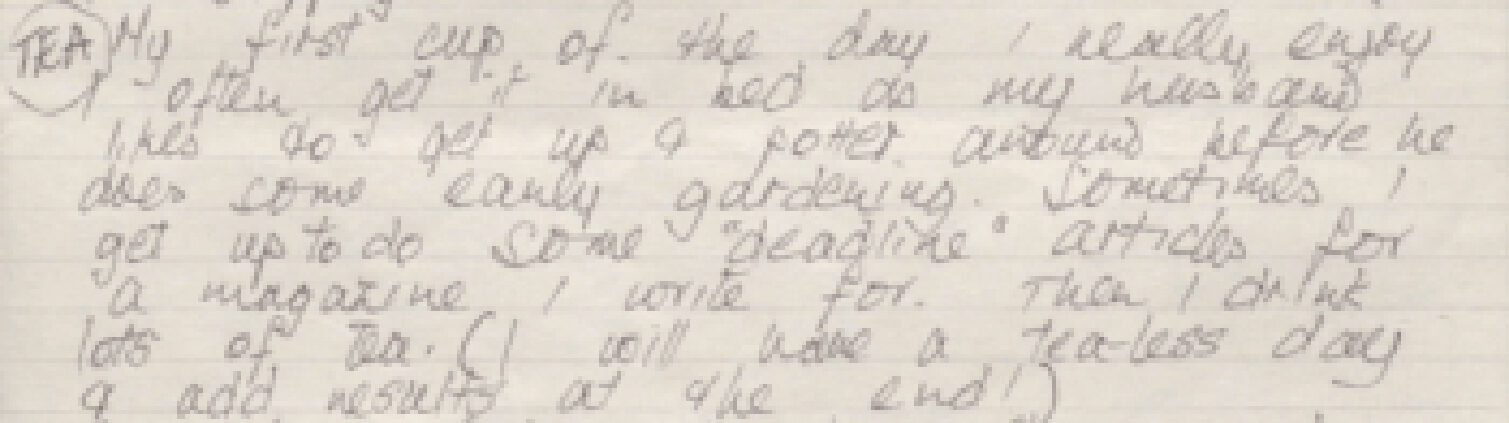 TEA My first cup of the day I really enjoy
I often get it in bed as my husband
likes to get up & potter around before he
does some early gardening. Sometimes I
get up to do some "deadline" articles for
a magazine I write for. Then I drink
lots of Tea. (I will have a tea-less day
& add results at the end!)